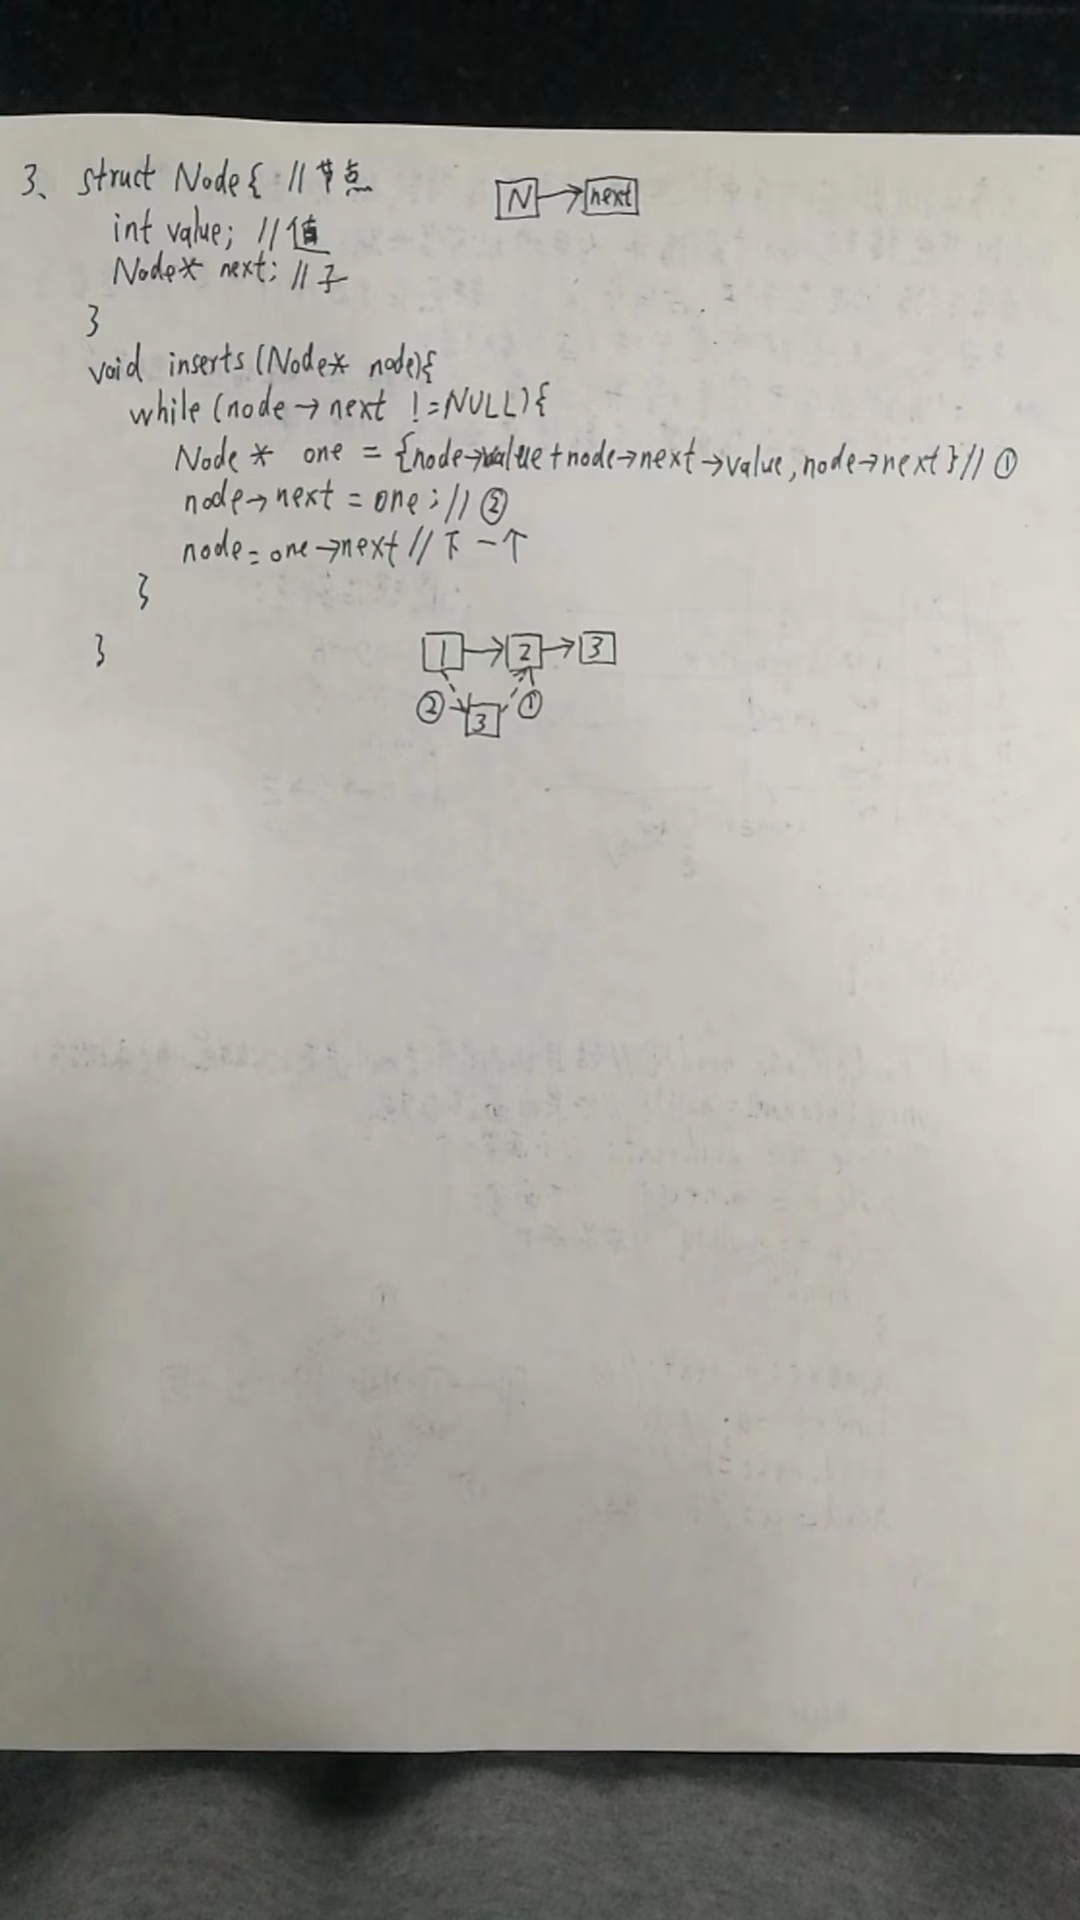 3、struct Node{ //节点
int value; //值
Node* next; //子
}
N → next
void inserts(Node* node){
while(node→next !=NULL){
Node * one = {node→value+node→next→value,node→next}//①
node→next = one;//②
node=one→next//下一个
}
}
1 → 2 → 3
② 3 ①